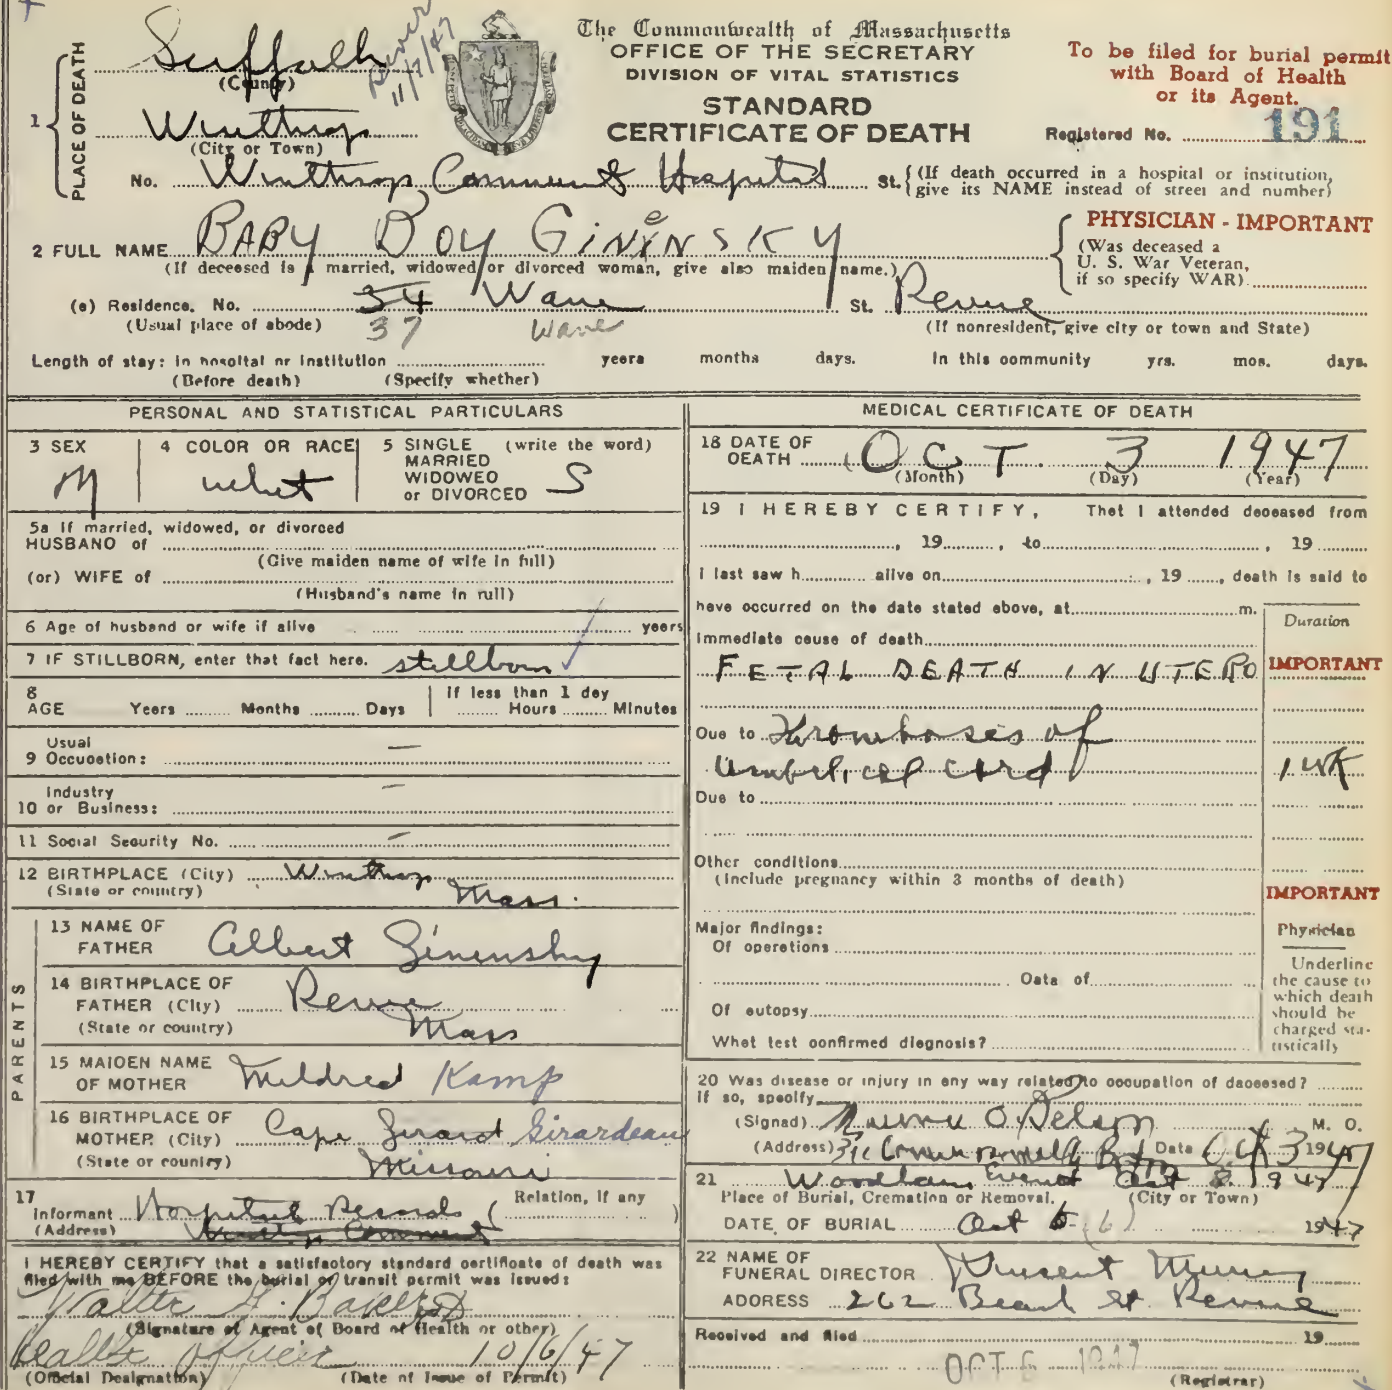 Revere
11/7/47
The Commonwealth of Massachusetts
OFFICE OF THE SECRETARY
DIVISION OF VITAL STATISTICS
STANDARD
CERTIFICATE OF DEATH
To be filed for burial permit
with Board of Health
or its Agent.
Registered No. 191
1 PLACE OF DEATH
Suffolk
(County)
Winthrop
(City or Town)
No. Winthrop Community Hospital St. (If death occurred in a hospital or institution,
give its NAME instead of street and number)
2 FULL NAME BABY BOY GINENSKY
(If deceased is a married, widowed or divorced woman, give also maiden name.)
PHYSICIAN - IMPORTANT
(Was deceased a
U. S. War Veteran,
if so specify WAR)
(a) Residence. No. 34 Wave St. Revere
(Usual place of abode) 37 Wave (If nonresident, give city or town and State)
Length of stay: In hospital or institution years months days. In this community yrs. mos. days.
(Before death) (Specify whether)
PERSONAL AND STATISTICAL PARTICULARS
3 SEX M
4 COLOR OR RACE whit
5 SINGLE (write the word)
MARRIED
WIDOWED
or DIVORCED S
5a If married, widowed, or divorced
HUSBAND of
(Give maiden name of wife in full)
(or) WIFE of
(Husband's name in full)
6 Age of husband or wife if alive years
7 IF STILLBORN, enter that fact here. stillborn
8 AGE Years Months Days If less than 1 day Hours Minutes
9 Usual Occupation: —
10 Industry or Business: —
11 Social Security No. —
12 BIRTHPLACE (City) Winthrop
(State or country) Mass.
PARENTS
13 NAME OF FATHER Albert Ginensky
14 BIRTHPLACE OF FATHER (City) Revere
(State or country) Mass
15 MAIDEN NAME OF MOTHER Mildred Kamp
16 BIRTHPLACE OF MOTHER (City) Cape Girard Girardeau
(State or country) Missouri
17 Informant Hospital Records (Relation, if any )
(Address) Winthrop Comment
I HEREBY CERTIFY that a satisfactory standard certificate of death was
filed with me BEFORE the burial or transit permit was issued:
Walter A. Baker
(Signature of Agent of Board of Health or other)
Health Officer 10/6/47
(Official Designation) (Date of Issue of Permit)
MEDICAL CERTIFICATE OF DEATH
18 DATE OF DEATH OCT. 3 1947
(Month) (Day) (Year)
19 I HEREBY CERTIFY, That I attended deceased from
, 19 , to , 19
I last saw h alive on , 19 , death is said to
have occurred on the date stated above, at m.
Duration
Immediate cause of death
FETAL DEATH IN UTERO
IMPORTANT
Due to Thromboses of
Umbilical cord 1 wk
Due to
Other conditions
(Include pregnancy within 3 months of death)
IMPORTANT
Major findings:
Of operations
Date of
Of autopsy
What test confirmed diagnosis?
Physician
Underline
the cause to
which death
should be
charged sta-
tistically
20 Was disease or injury in any way related to occupation of deceased?
If so, specify
(Signed) O. Pelson M. D.
(Address) Date Oct 3 1947
21 Woodlawn, Everett Oct 3 1947
Place of Burial, Cremation or Removal. (City or Town)
DATE OF BURIAL Oct 6 (6) 1947
22 NAME OF
FUNERAL DIRECTOR Vincent
ADDRESS 262 Beach St. Revere
Received and filed 19
OCT 6 1947
(Registrar)